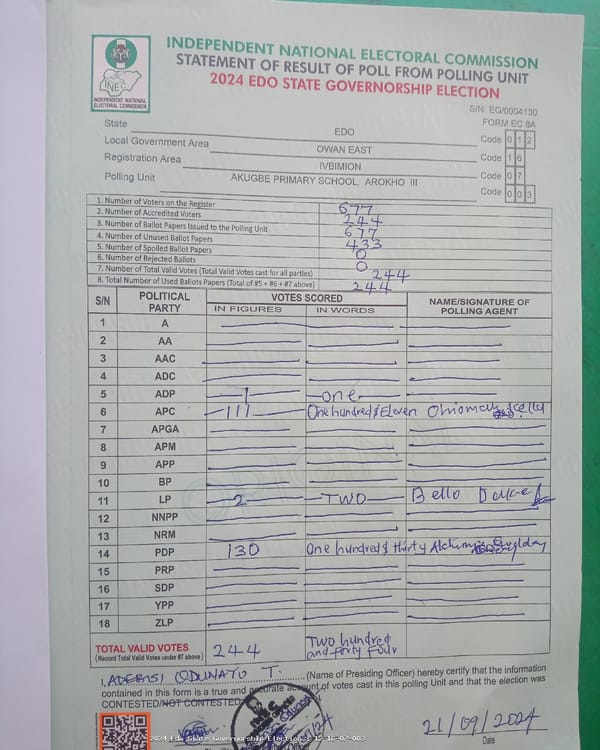 INDEPENDENT NATIONAL ELECTORAL COMMISSION
STATEMENT OF RESULT OF POLL FROM POLLING UNIT
2024 EDO STATE GOVERNORSHIP ELECTION
INEC
INDEPENDENT NATIONAL
ELECTORAL COMMISSION
S/N: EG/0004130
FORM EC 8A
State EDO Code 0 1 2
Local Government Area OWAN EAST Code 1 6
Registration Area IVBIMION Code 0 7
Polling Unit AKUGBE PRIMARY SCHOOL, AROKHO III Code 0 0 3
1. Number of Voters on the Register 677
2. Number of Accredited Voters 244
3. Number of Ballot Papers Issued to the Polling Unit 677
4. Number of Unused Ballot Papers 433
5. Number of Spoiled Ballot Papers 0
6. Number of Rejected Ballots 0
7. Number of Total Valid Votes (Total Valid Votes cast for all parties) 244
8. Total Number of Used Ballots Papers (Total of #5 + #6 + #7 above) 244
S/N POLITICAL PARTY VOTES SCORED NAME/SIGNATURE OF POLLING AGENT
IN FIGURES IN WORDS
1 A
2 AA
3 AAC
4 ADC
5 ADP 1 one
6 APC 111 One hundred & Eleven
7 APGA
8 APM
9 APP
10 BP
11 LP 2 TWO Bello
12 NNPP
13 NRM
14 PDP 130 One hundred & thirty
15 PRP
16 SDP
17 YPP
18 ZLP
TOTAL VALID VOTES 244 Two hundred and forty four
(Record Total Valid Votes under #7 above)
I, ADEBISI ODUNAYO T. (Name of Presiding Officer) hereby certify that the information
contained in this form is a true and accurate account of votes cast in this polling Unit and that the election was
CONTESTED/NOT CONTESTED
21/09/2024
2024 Edo State Governorship Election - 12-16-07-003
Date